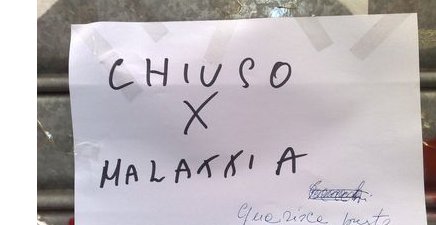 CHIUSO
X
MALATTIA
Guarisca presto